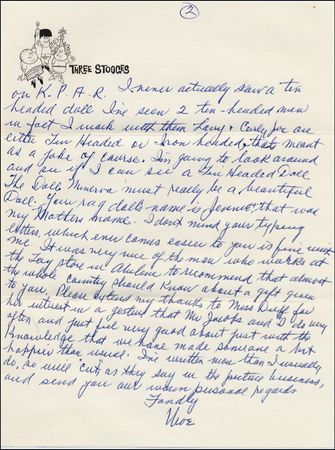 ②
THREE STOOGES
on K.P.A.R. I never actually saw a tin
headed doll I've seen 2 tin-headed men
in fact I work with them Larry & Curly Joe are
either Tin Headed or Iron headed, that meant
as a joke of course. I'm going to look around
and see if I can see a Tin Headed Doll
The Doll Minerva must really be a beautiful
Doll. Your rag dolls name is Jennie, that was
my Mothers name. I don't mind your typing
letters, which ever comes easier to you is fine with
me. It was very nice of the man who works at
the Toy store in Abilene to recommend that almost
the whole country should know about a gift given
to you. Please extend my thanks to Miss Duff for
her interest in a gesture that Mr Jacobs and I do very
often and just feel very good about just with the
knowledge that we have made someone a bit
happier than usual. I've written more than I usually
do, so will "cut" as they say in the picture business,
and send you our warm personal regards
Fondly
Moe